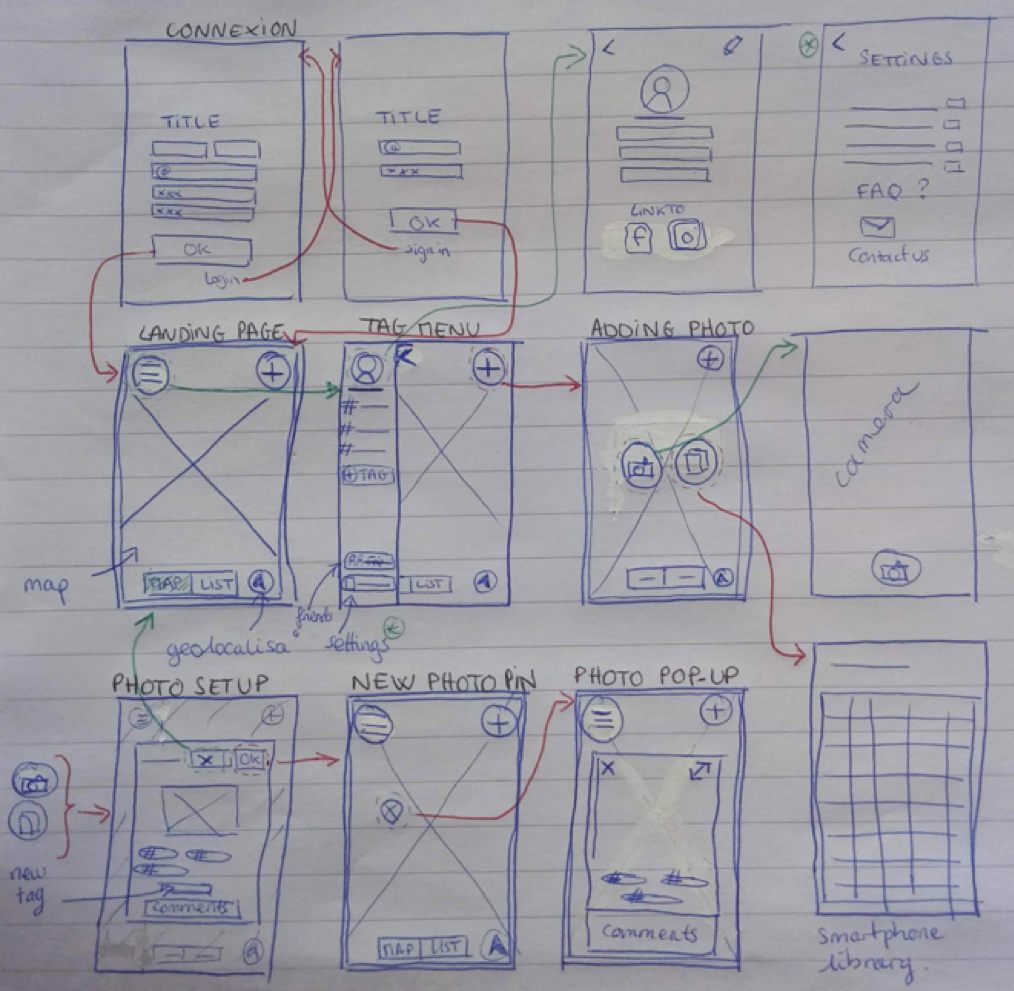 CONNEXION
TITLE
@
xxx
xxx
OK
Login
TITLE
@
xxx
OK
sign in
LINK TO
f
SETTINGS
FAQ ?
Contact us
LANDING PAGE
MAP LIST
map
geolocalisa°
TAG MENU
#
#
#
+ TAG
LIST
friends
settings
ADDING PHOTO
camera
PHOTO SETUP
X OK
# #
#
new
tag
Comments
NEW PHOTO PIN
MAP LIST
PHOTO POP-UP
X
# #
#
Comments
Smartphone
library.